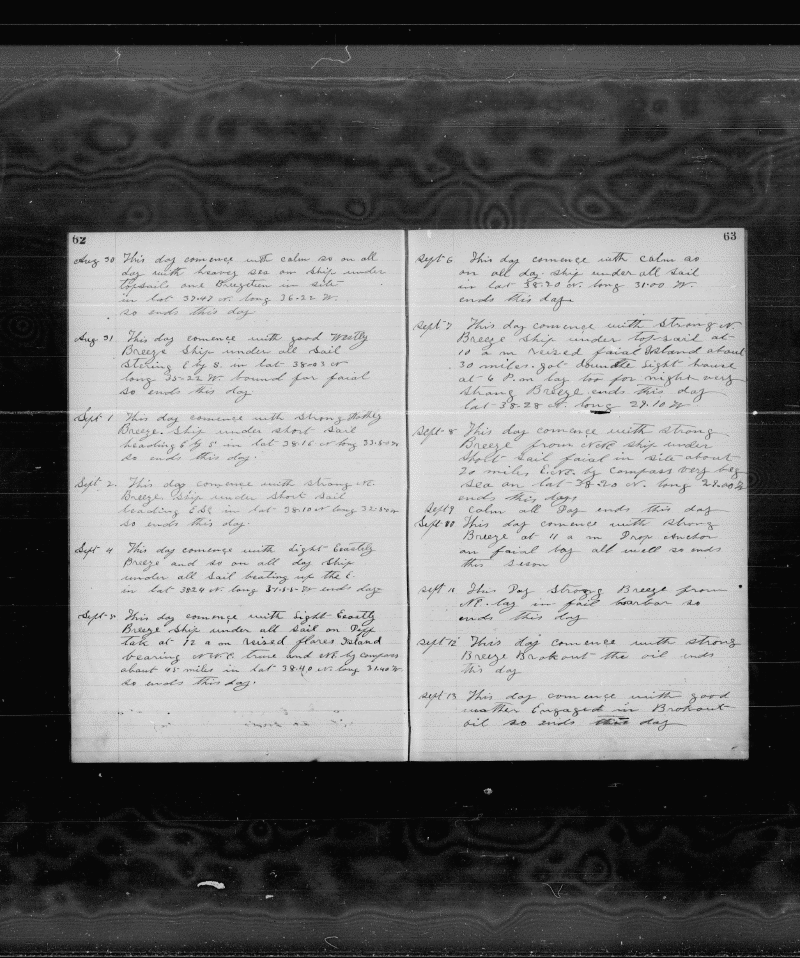 62
Aug 30 This day comence with calm so on all
day with heavey sea on Ship under
topsails one Bregtien in site
in lat 37-42 N. long 36-22 W.
so ends this day
Aug 31 This day comence with good Westly
Breeze Ship under all Sail
Stering E by S. in lat 38-03 N
long 35-22 W. bound for faial
so ends this day
Sept 1 This day comence with Strong
Breeze. Ship under short Sail
heading E by S in lat 38-16 N long
so ends this day.
Sept 2. This day comence with strong N.
Breeze Ship under short Sail
heading ESE in lat 38-10 N long
so ends this day.
Sept 4 This day comence with light Eeastly
Breeze and so on all day Ship
under all Sail beating up the E.
in lat 3824 N. long W ends day
Sept 5 This day comence with light Eeastly
Breeze Ship under all Sail on Port
tak at 12 a m reised flores Island
bearing true and NE by compass
about 45 miles in lat 38-40 N. long 31-40 W.
so ends this day.
63
Sept 6 This day comence with calm so
on all day ship under all Sail
in lat 38-20 N. long 31-00 W.
ends this day
Sept 7 This day comence with Strong N.
Breeze Ship under top-sail at
10 a m reized faial Island about
30 miles. got light house
at 6 P.m lay too for night very
strong Breeze ends this day
lat 38-28 N. long 29.10 W
Sept 8 This day comence with strong
Breeze from NNE ship under
Short Sail faial in site about
20 miles E.NE. by compass very beg
sea on lat 38-20 N. long 29-00 W
ends this days
Sept 9 Calm all Day ends this day
Sept 10 This day comence with strong
Breeze at 11 a m Drop Anchor
on faial bay all well so ends
this
Sept 11 This Day Strong Breeze from
NE. lay in fail harbar so
ends this day
Sept 12 This day comence with strong
Breeze Brokout the oil ends
this day
Sept 13 This day comence with good
wather Engaged in Brokout
oil so ends this day